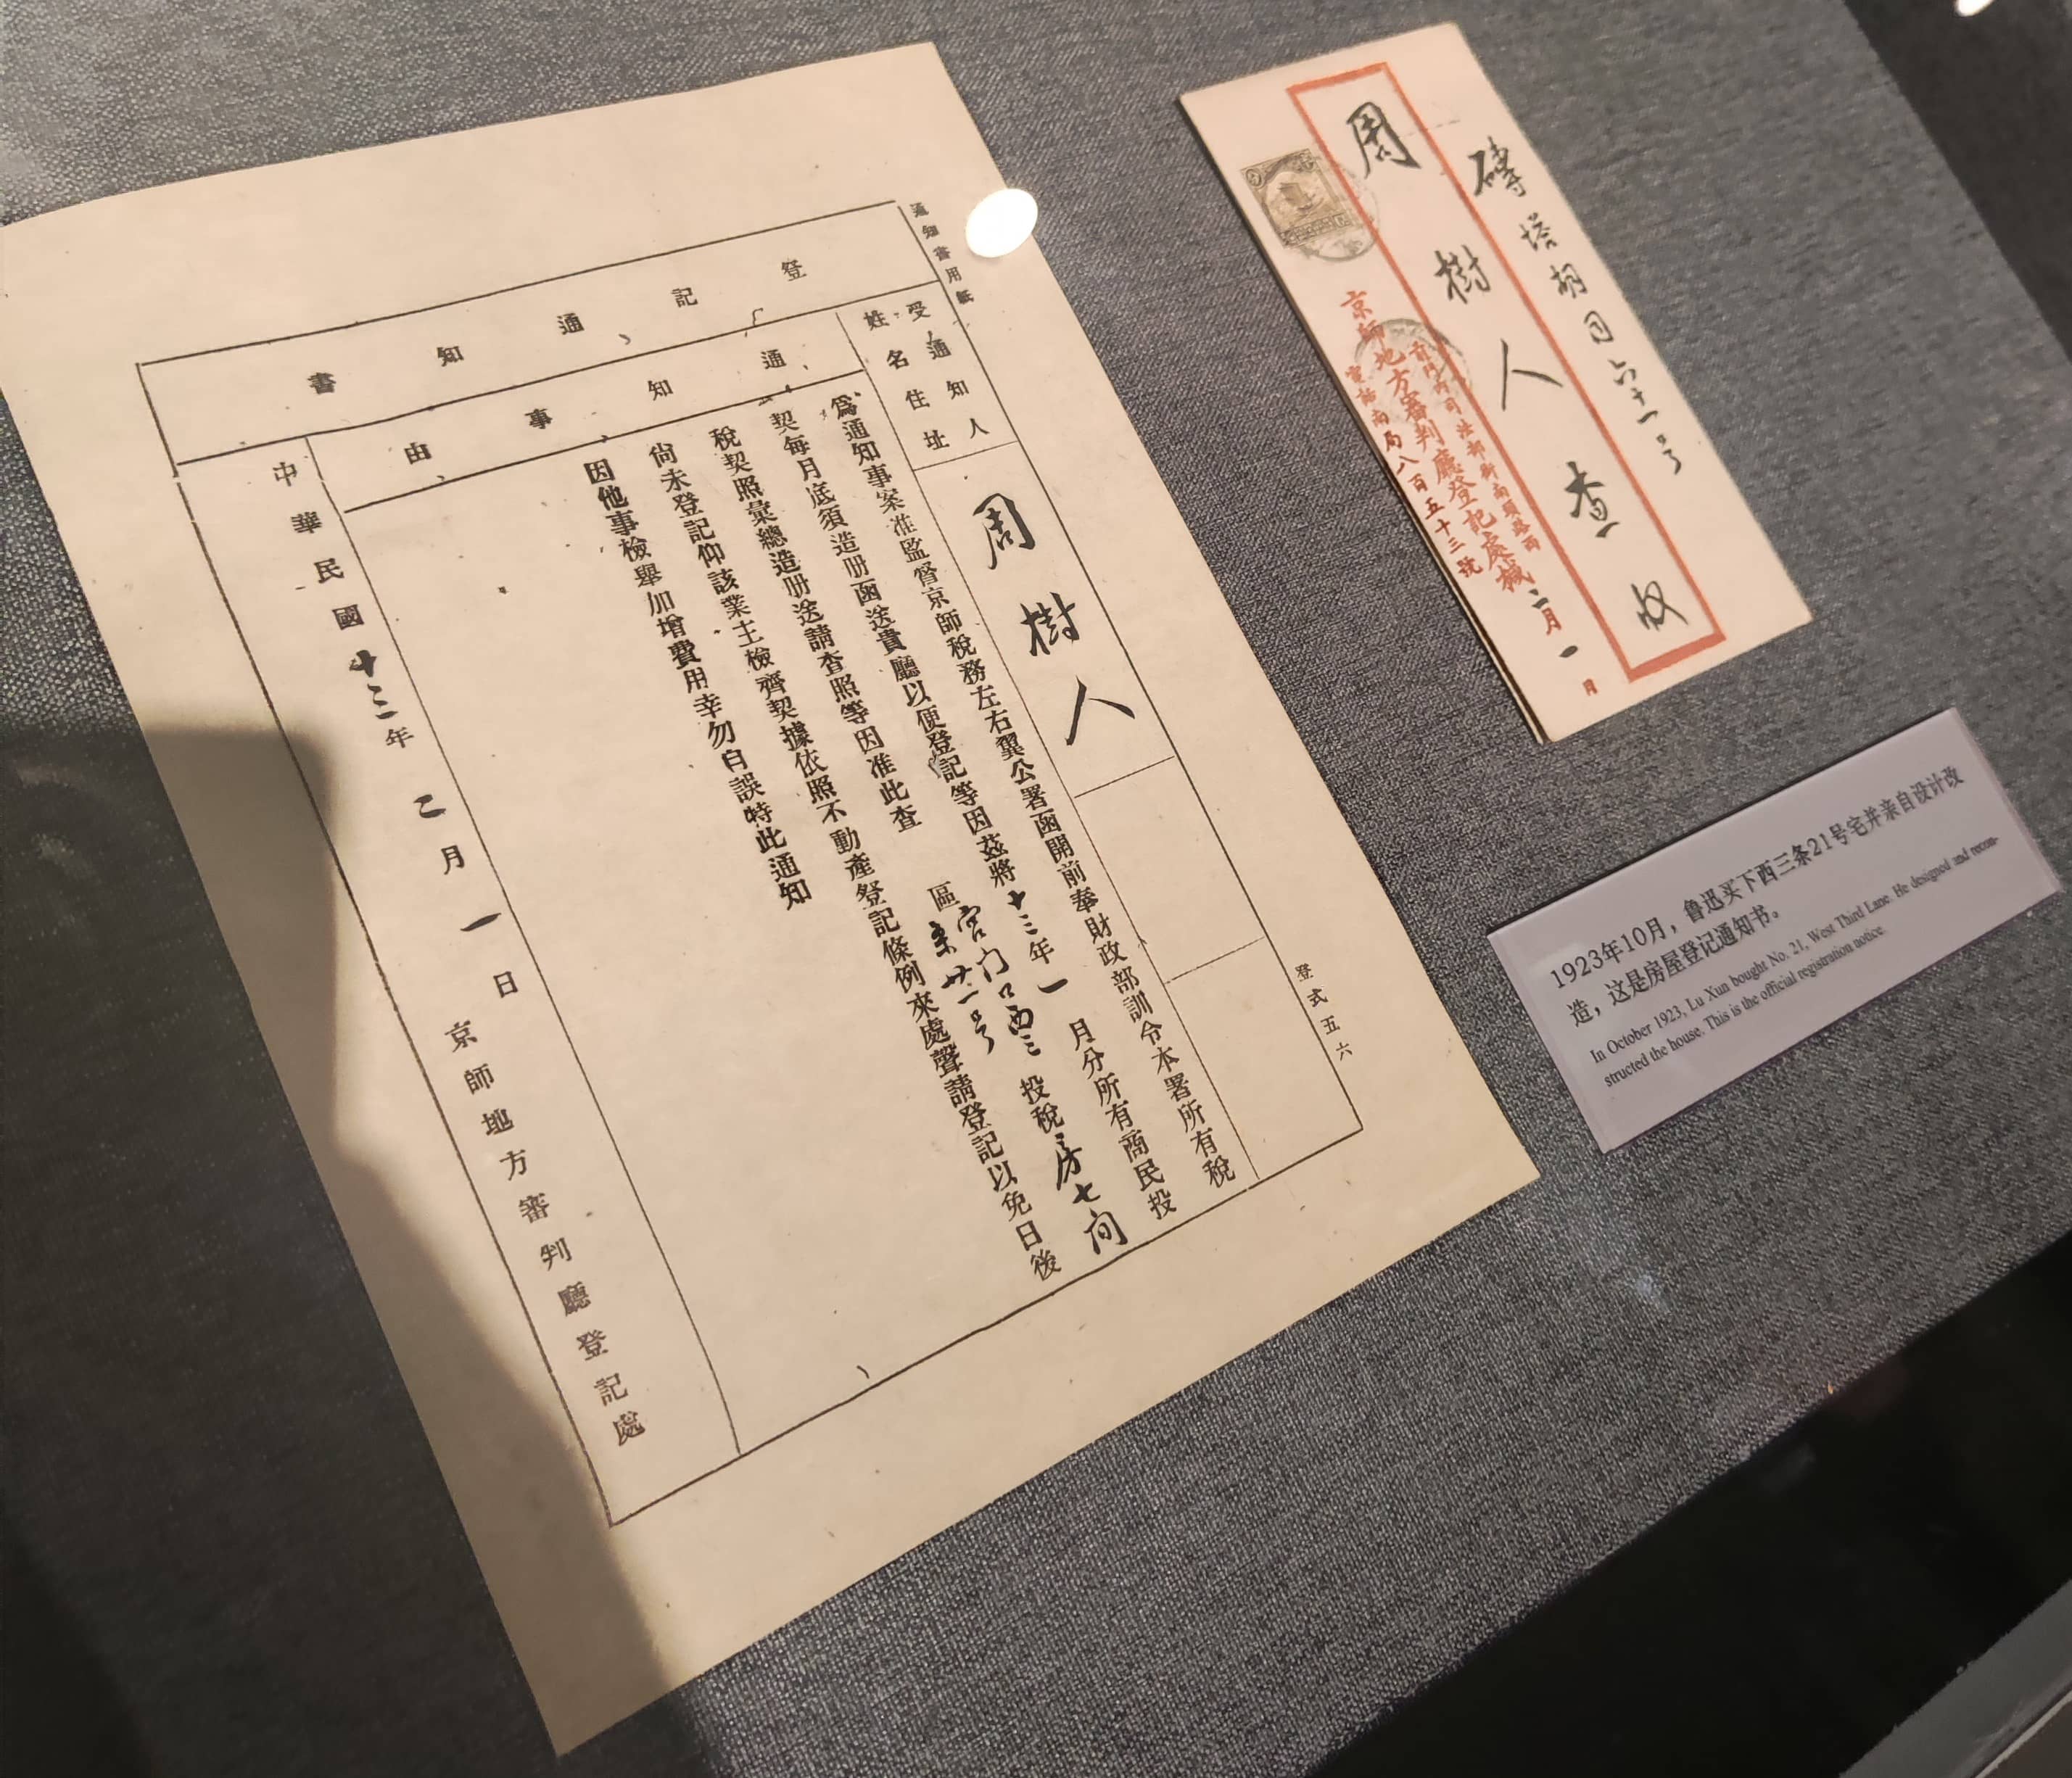 通知書用紙
登記通知書
受通知人
姓名住址
周樹人
通知事由
為通知事案准監督京師稅務左右翼公署函開前奉財政部訓令本署所有稅
契每月底須造册函送貴廳以便登記等因茲將十三年一月分所有商民投
稅契照彙總造册送請查照等因准此查 區宮門口西三条廿一号投稅房七间
尚未登記仰該業主檢齊契據依照不動產登記條例來處聲請登記以免日後
因他事檢舉加增費用幸勿自誤特此通知
中華民國十三年二月一日
京師地方審判廳登記處
登式五六
磚塔胡同六十一号
周樹人查收
前門內司法部街南頭路西
京師地方審判廳登記處緘
電話南局八百五十三號
二月一日
1923年10月，鲁迅买下西三条21号宅并亲自设计改
造，这是房屋登记通知书。
In October 1923, Lu Xun bought No. 21, West Third Lane. He designed and recon-
structed the house. This is the official registration notice.